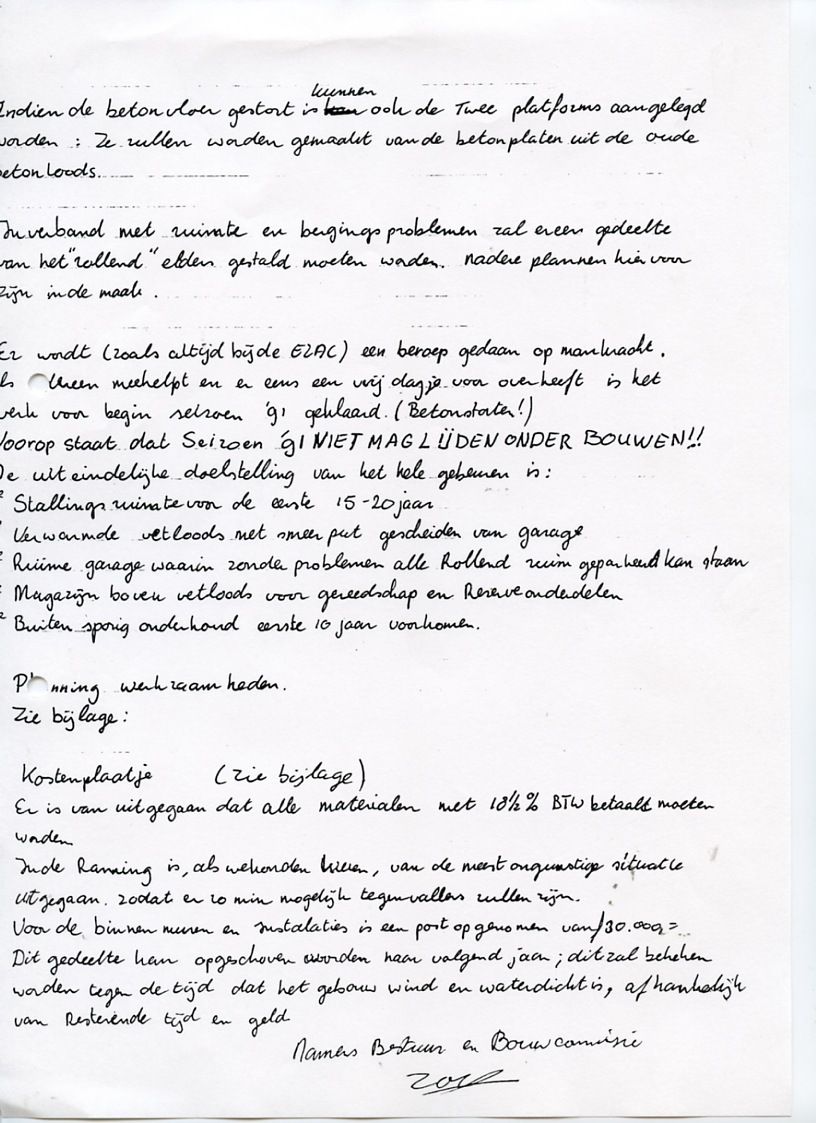 kunnen
Indien de betonvloer gestort is ook de Twee platforms aangelegd
worden : Ze zullen worden gemaakt van de betonplaten uit de oude
betonloods.
In verband met ruimte en bergingsproblemen zal er een gedeelte
van het "rollend" elders gestald moeten worden. Nadere plannen hiervoor
zijn in de maak.
Er wordt (zoals altijd bij de EZAC) een beroep gedaan op mankracht.
meehelpt en er eens een vrij dagje voor over heeft is het
werk voor begin seizoen '91 geklaard. (Betonstorten!)
Voorop staat dat Seizoen '91 NIET MAG LIJDEN ONDER BOUWEN!!
De uiteindelijke doelstelling van het hele gebeuren is:
Stallingsruimte voor de eerste 15-20 jaar
Verwarmde vetloods met smeerput gescheiden van garage
Ruime garage waarin zonder problemen alle Rollend ruim geparkeerd kan staan
Magazijn boven vetloods voor gereedschap en Reserveonderdelen
Buitensporig onderhoud eerste 10 jaar voorkomen.
Planning werkzaamheden.
Zie bijlage:
Kostenplaatje (zie bijlage)
Er is van uitgegaan dat alle materialen met 18½% BTW betaald moeten
worden
In de Ramming is, als we konden kiezen, van de meest ongunstige situatie
uitgegaan. zodat er zo min mogelijk tegenvallers zullen zijn.
Voor de binnenmuren en Instalaties is een post opgenomen van ƒ30.000,=
Dit gedeelte kan opgeschoven worden naar volgend jaar; dit zal bekeken
worden tegen de tijd dat het gebouw wind en waterdicht is, afhankelijk
van Resterende tijd en geld
Namens Bestuur en Bouwcommisie